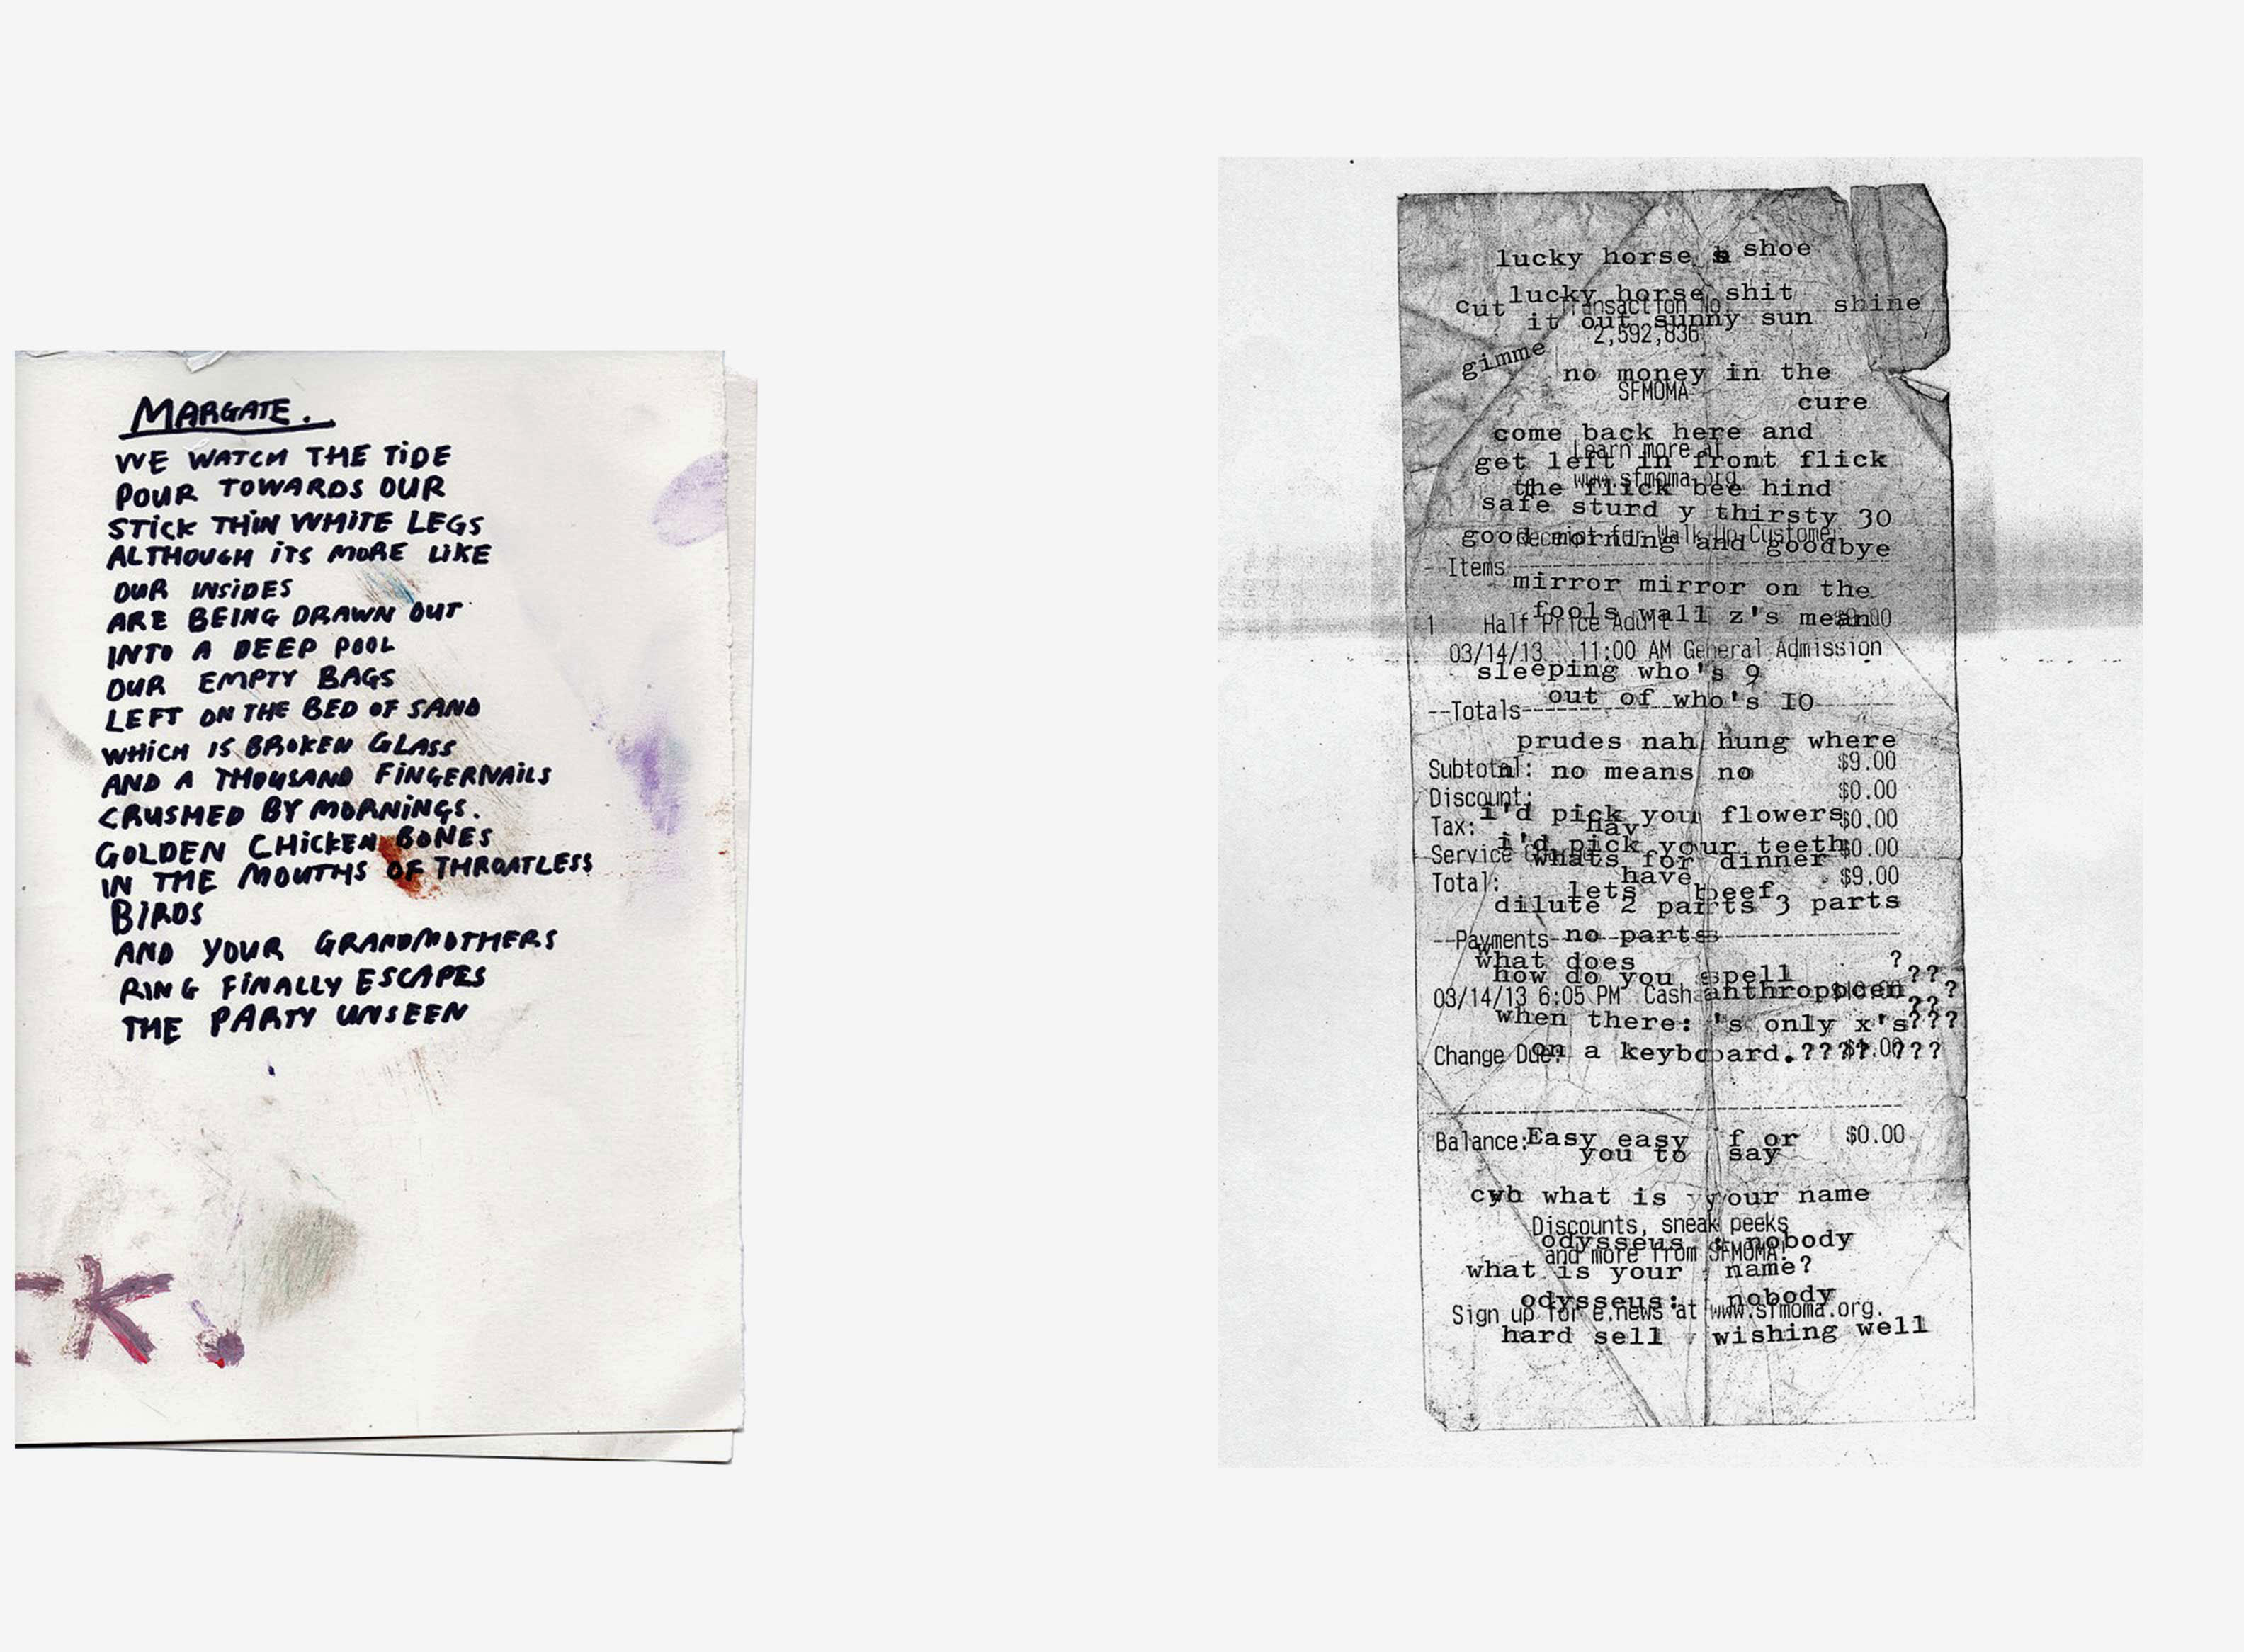 MARGATE.
WE WATCH THE TIDE
POUR TOWARDS OUR
STICK THIN WHITE LEGS
ALTHOUGH ITS MORE LIKE
OUR INSIDES
ARE BEING DRAWN OUT
INTO A DEEP POOL
OUR EMPTY BAGS
LEFT ON THE BED OF SAND
WHICH IS BROKEN GLASS
AND A THOUSAND FINGERNAILS
CRUSHED BY MORNINGS.
GOLDEN CHICKEN BONES
IN THE MOUTHS OF THROATLESS
BIRDS
AND YOUR GRANDMOTHERS
RING FINALLY ESCAPES
THE PARTY UNSEEN
CK.
lucky horse shoe
lucky horse shit
cut shine
Transaction No
it out sunny sun
2,592,836
gimme
no money in the
SFMOMA
cure
come back here and
Learn more at
get left in front flick
www.sfmoma.org
the flick bee hind
safe sturd y thirsty 30
Receipt for Walk Up Customer
good morning and goodbye
--Items--
mirror mirror on the
fools wall z's mean
1 Half Price Adult $9.00
03/14/13 11:00 AM General Admission
sleeping who's 9
out of who's IO
--Totals--
prudes nah hung where
Subtotal: $9.00
no means no
Discount: $0.00
i'd pick you flowers
Tax: $0.00
i'd pick your teeth
Service $0.00
whats for dinner
have
Total: $9.00
lets beef
dilute 2 parts 3 parts
no parts
--Payments--
what does ?
how do you spell ??
03/14/13 6:05 PM Cash
anthropocen ?
??
when there: 's only x's???
on a keyboard.???? ???
Change Due: $1.00
Balance: $0.00
Easy easy f or
you to say
what is your name
Discounts, sneak peeks
odysseus : nobody
and more from SFMOMA!
what is your name?
odysseus: nobody
Sign up for e.news at www.sfmoma.org.
hard sell wishing well